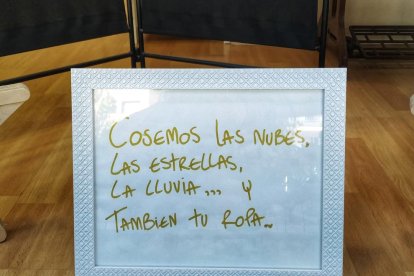 COSEMOS LAS NUBES,
LAS ESTRELLAS,
LA LLUVIA,,, Y
TAMBIEN TU ROPA~